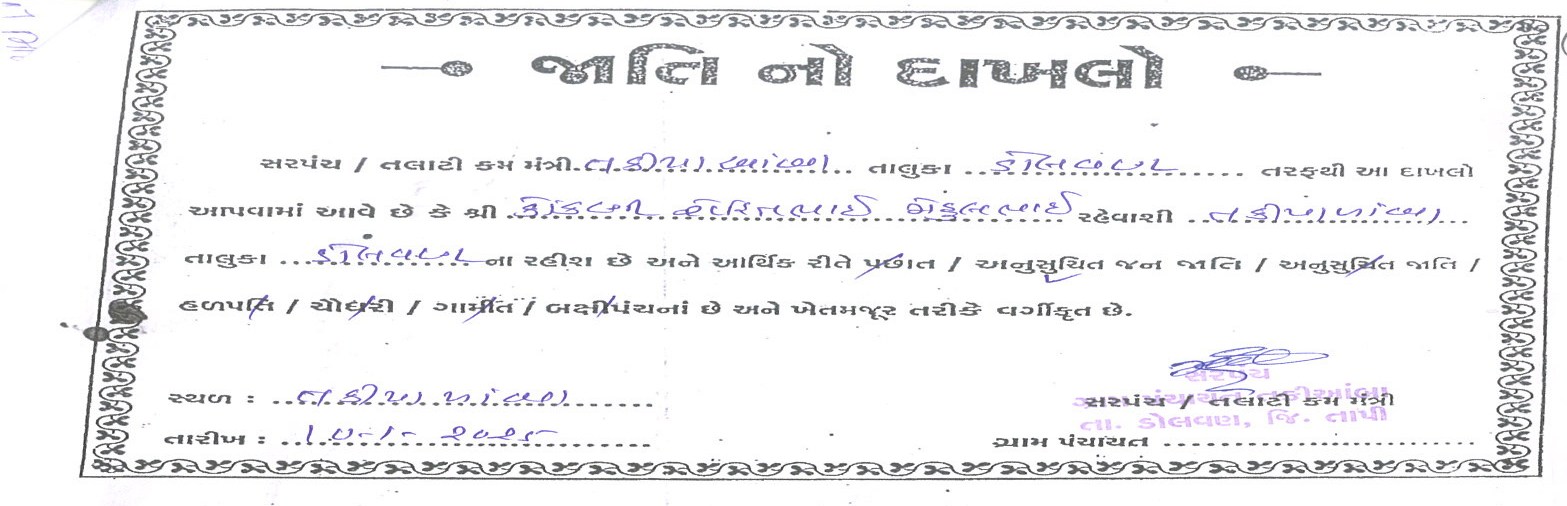 જાતિ નો દાખલો
સરપંચ / તલાટી કમ મંત્રી તકીઆંબા તાલુકા ડોલવણ તરફથી આ દાખલો
આપવામાં આવે છે કે શ્રી કોંકણી રહેવાશી તકીઆંબા
તાલુકા ડોલવણ ના રહીશ છે અને આર્થિક રીતે પછાત / અનુસુચિત જન જાતિ / અનુસુચિત જાતિ /
હળપતિ / ચૌધરી / ગામીત / બક્ષીપંચનાં છે અને ખેતમજૂર તરીકે વર્ગીકૃત છે.
સરપંચ
સ્થળ : તકીઆંબા સરપંચ / તલાટી કમ મંત્રી
ગ્રામ પંચાયત તકીઆંબા
તા. ડોલવણ, જિ. તાપી
તારીખ : ૨૦૨૫ ગ્રામ પંચાયત